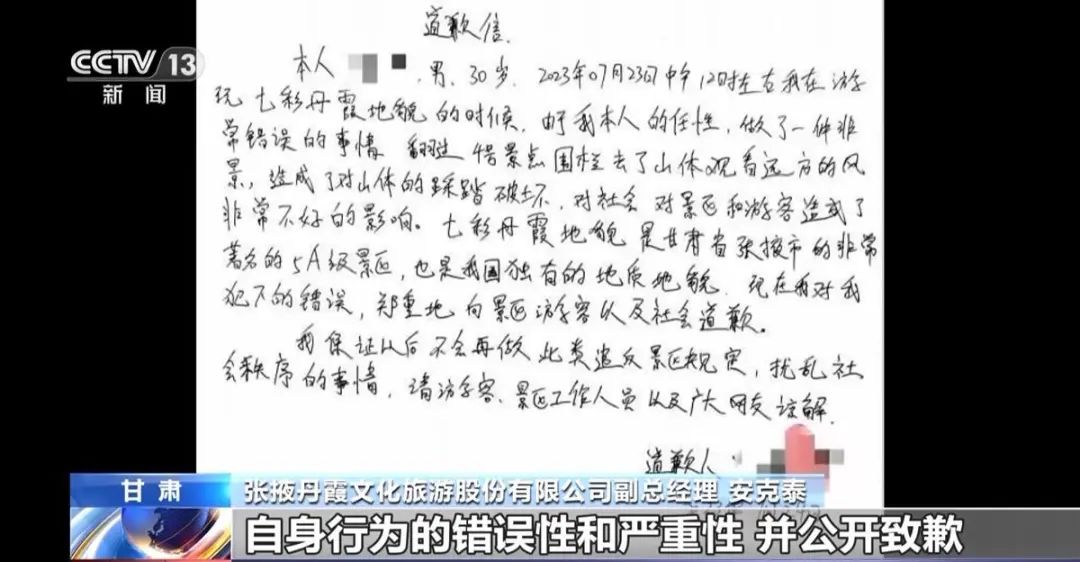 CCTV 13
新闻
道歉信.
本人
,男、30岁、2023年07月23日中午12时左右我在游
玩七彩丹霞地貌的时候,由于我本人的任性,做了一件非
常错误的事情 翻过 景点围栏去了山体观看远方的风
景,造成了对山体的踩踏破坏,对社会 对景区和游客造成了
非常不好的影响。七彩丹霞地貌是甘肃省张掖市的非常
著名的5A级景区,也是我国独有的地质地貌、现在我对我
犯下的错误,郑重地向景区游客以及社会道歉。
我保证以后不会再做此类违反景区规定,扰乱社
会秩序的事情,请游客、景区工作人员以及广大网友 解
道歉人:
甘肃
张掖丹霞文化旅游股份有限公司副总经理 安克泰
自身行为的错误性和严重性 并公开致歉